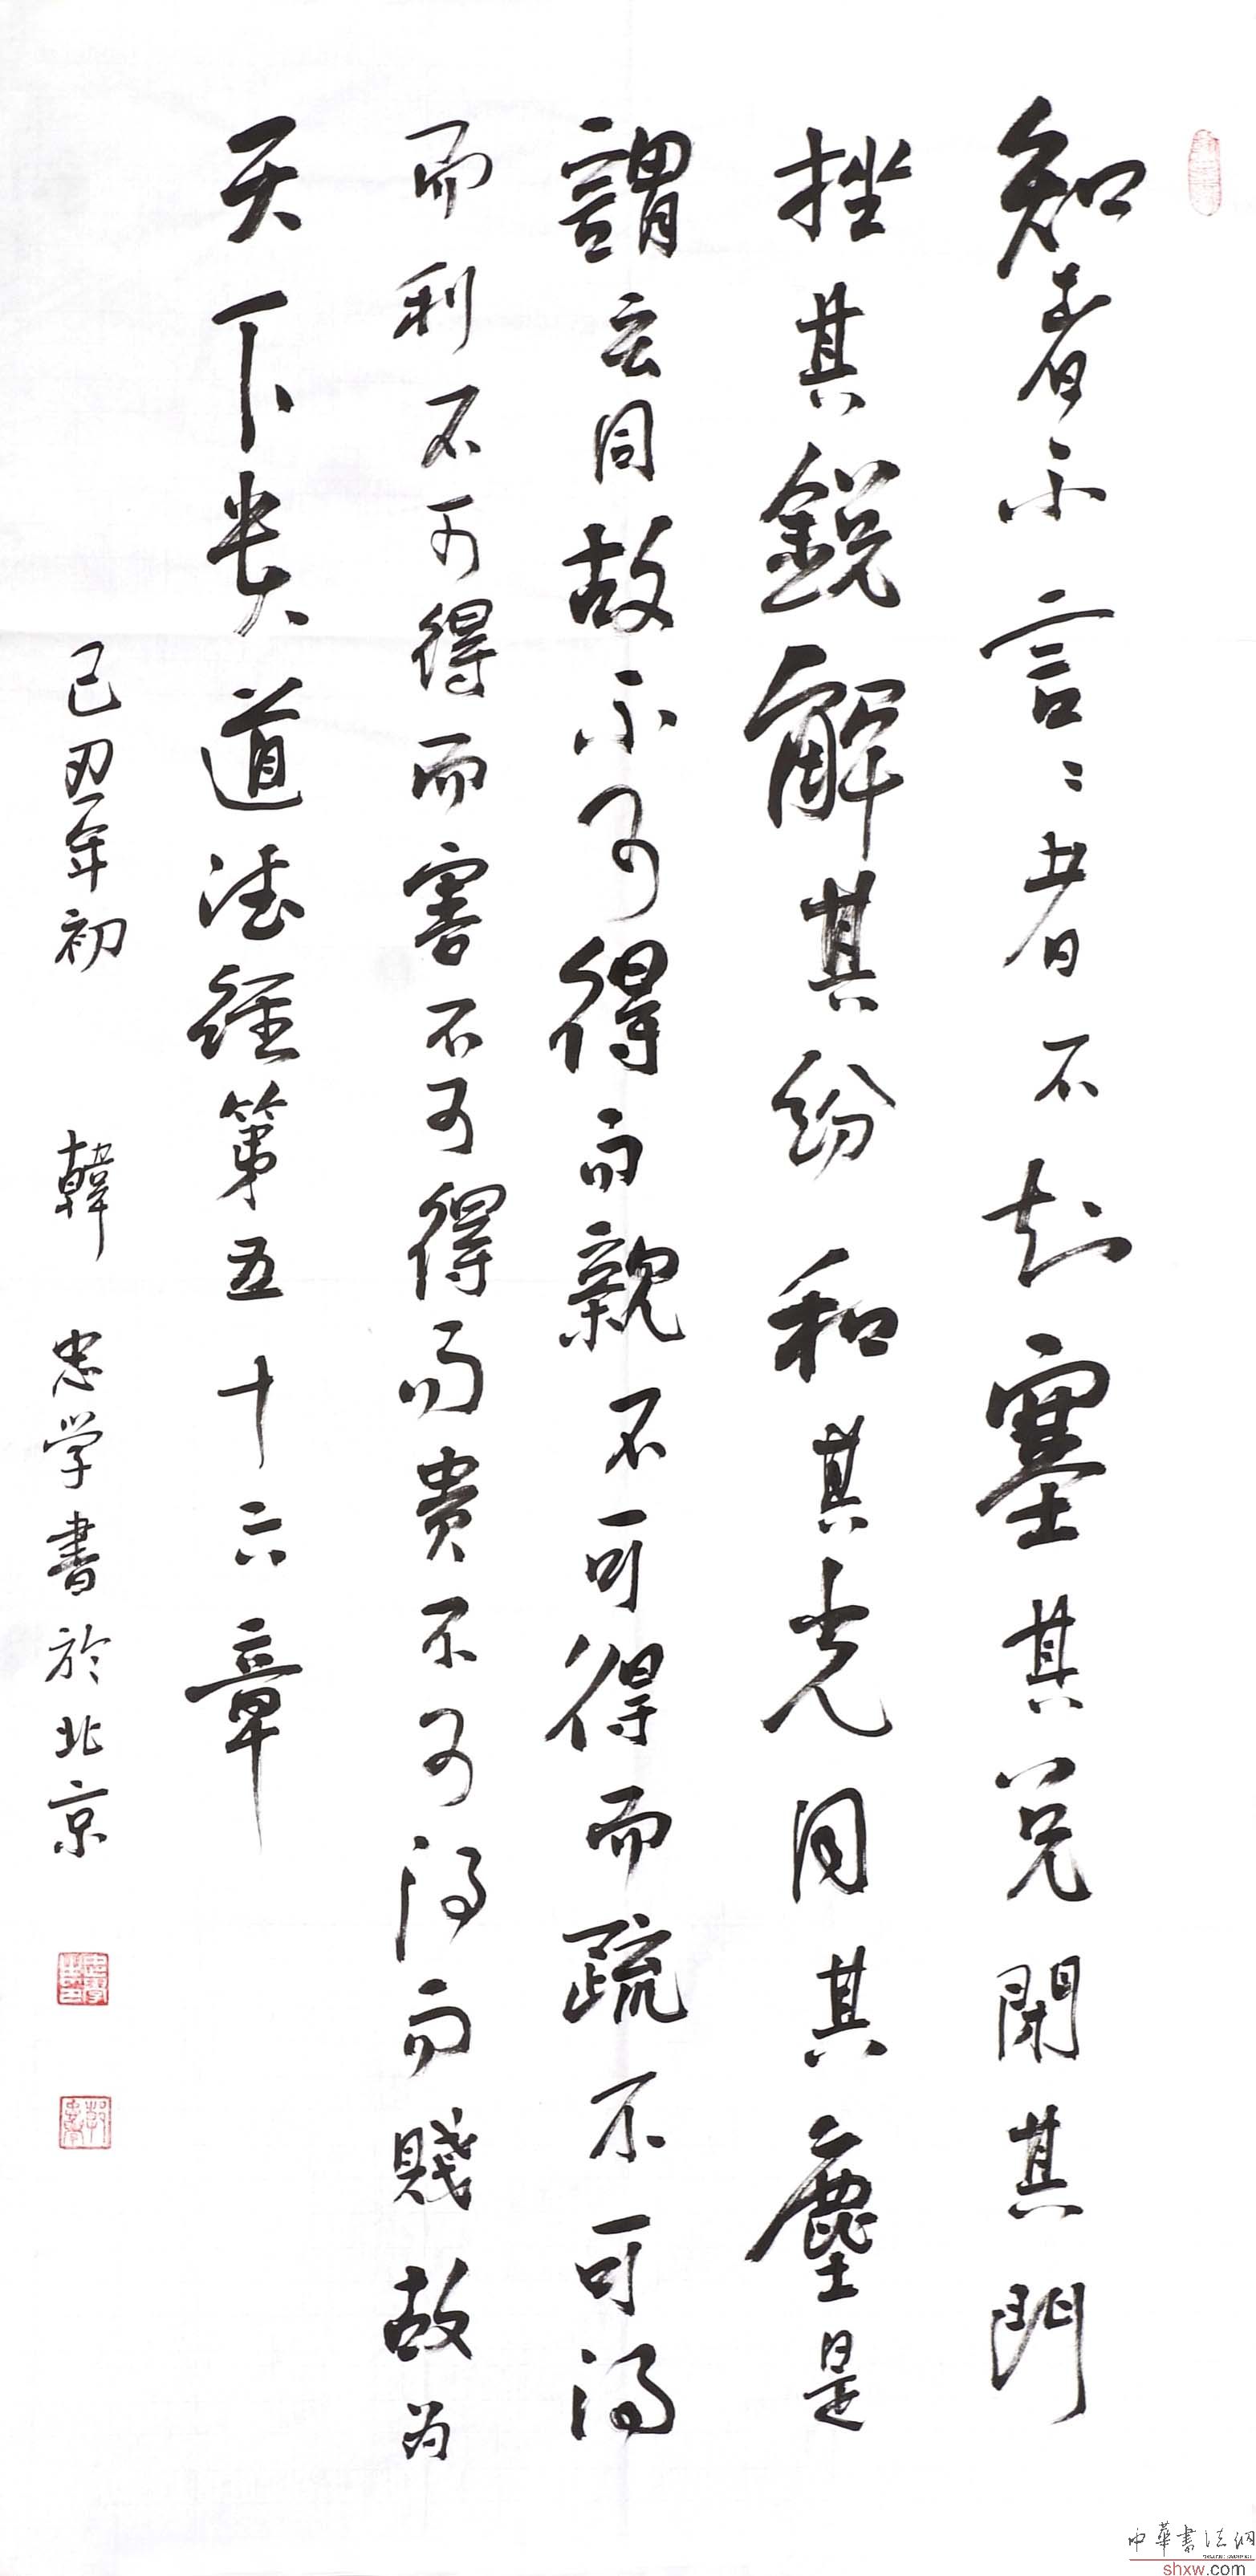 知者不言〻者不知塞其兑閉其門
挫其鋭解其紛和其光同其塵是
謂玄同故不可得而親不可得而疏不可得
而利不可得而害不可得而貴不可得而賤故為
天下貴道德經第五十六章
己丑年初 韓忠学書於北京
中華書法網
shxw.com